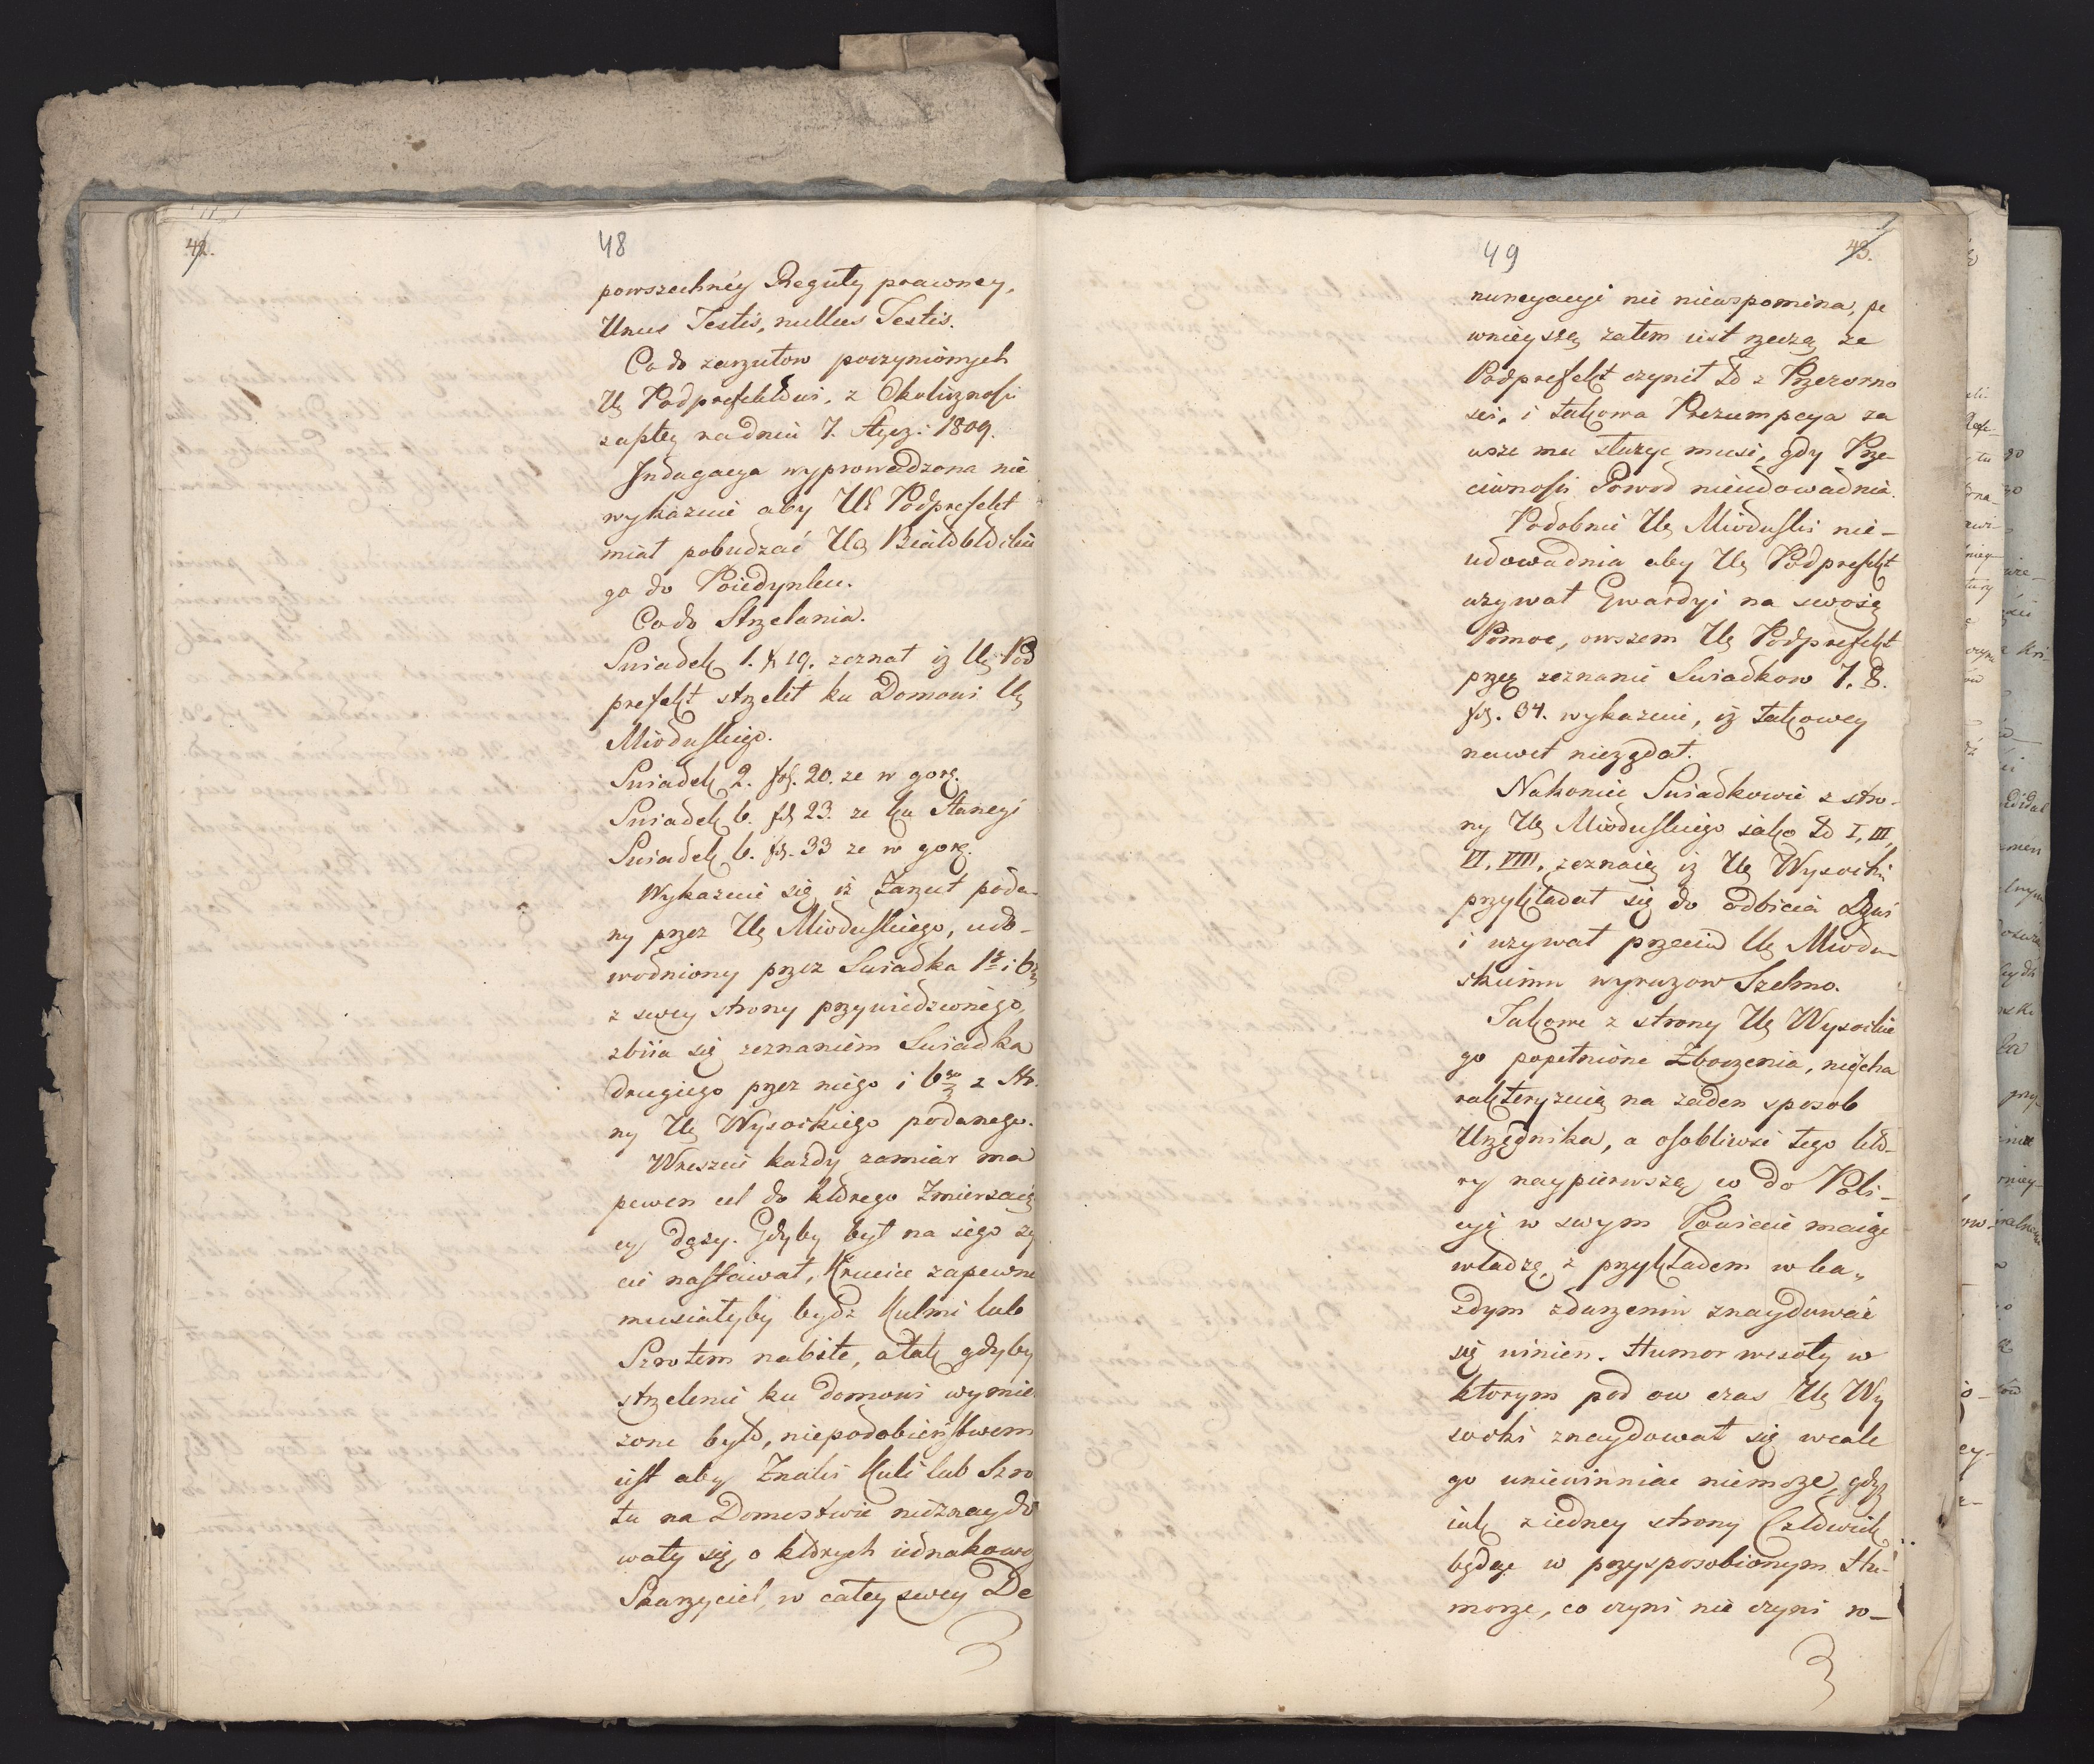 42.
48
powszechnéy Reguły prawney,
Unus Testis, nullus Testis.
Co do zarzutow poczynionych
Ur Podprefektowi, z Okolicznosci
zaszłey na dniu 7. Stycz: 1809.
Jndagacya wyprowadzona nie
wykazuie aby Ur Podprefekt
miał pobudzać Ur Białobłockie
go do Poiedynku.
Co do Strzelania.
Swiadek 1. f. 19. zeznał iż Ur Pod
prefekt strzelił ku Domowi Ur
Mioduskiego.
Swiadek 2. fol. 20. ze w gorę.
Swiadek 6. fol. 23. ze ku Stancyi
Swiadek 6. fol. 33 ze w gorę.
Wykazuie się iż Zarzut poda-
ny przez Ur Mioduskiego, udo-
wodniony przez Swiadka 1go i 6go
z swey strony przywiedzionego,
zbiia się zeznaniem Swiadka
drugiego przez niego i 6go z stro
ny Ur Wysockiego podanego.
Wreszcie każdy zamiar ma
pewen cel do którego Zmierzaią
cy dązy. Gdyby był na iego zy
cie nastawał, Krucice zapewne
musiałyby bydz Kulmi lub
Szrotem nabite, a tak gdyby
strzelenie ku domowi wymie
zone było, niepodobieństwem
iest aby Znaki Kuli lub Szro
tu na Domostwie nieznaydo
wały się, o których iednakowo
Skarzyciel w całey swey De
49
43.
nuncyacyi nic niewspomina, pe
wnieyszą zatem iest rzeczą ze
Podprefekt czynił to z Przezorno
sci, i takowa Prezumpcya za
wsze mu służyc musi, gdy Prze-
ciwnosci Powod nieudowadnia.
Podobnie Ur Mioduski nie-
udowadnia aby Ur Podprefekt
uzywał Gwardyi na swoię
Pomoc, owszem Ur Podprefekt
przez zeznanie Swiadkow 7. 8.
fol. 34. wykazuie, iż takowey
nawet nieządał.
Nakoniec Swiadkowie z stro-
ny Ur Mioduskiego iako to I, III,
VI, VIII, zeznaią iż Ur Wysocki
przykładał się do odbicia Drzwi
i uzywał przeciw Ur Miodu-
skiemu wyrazow Szelmo.
Takowe z strony Ur Wysockie
go popełnione Zboczenia, niecha
rakteryzuią na zaden sposob
Urzędnika, a osobliwie tego kto-
ry naypierwszą co do Poli-
cyi w swym Powiecie maiąc
władzę, z przykładem w ka-
zdym zdarzeniu znaydować
się winien. Humor wesoły w
ktorym pod ow czas Ur Wy
socki znaydował się wcale
go uniewinniac niemoze, gdyz
iak z iedney strony Człowiek
będąc w przysposobionym Hu-
morze, co czyni nie czyni ro-